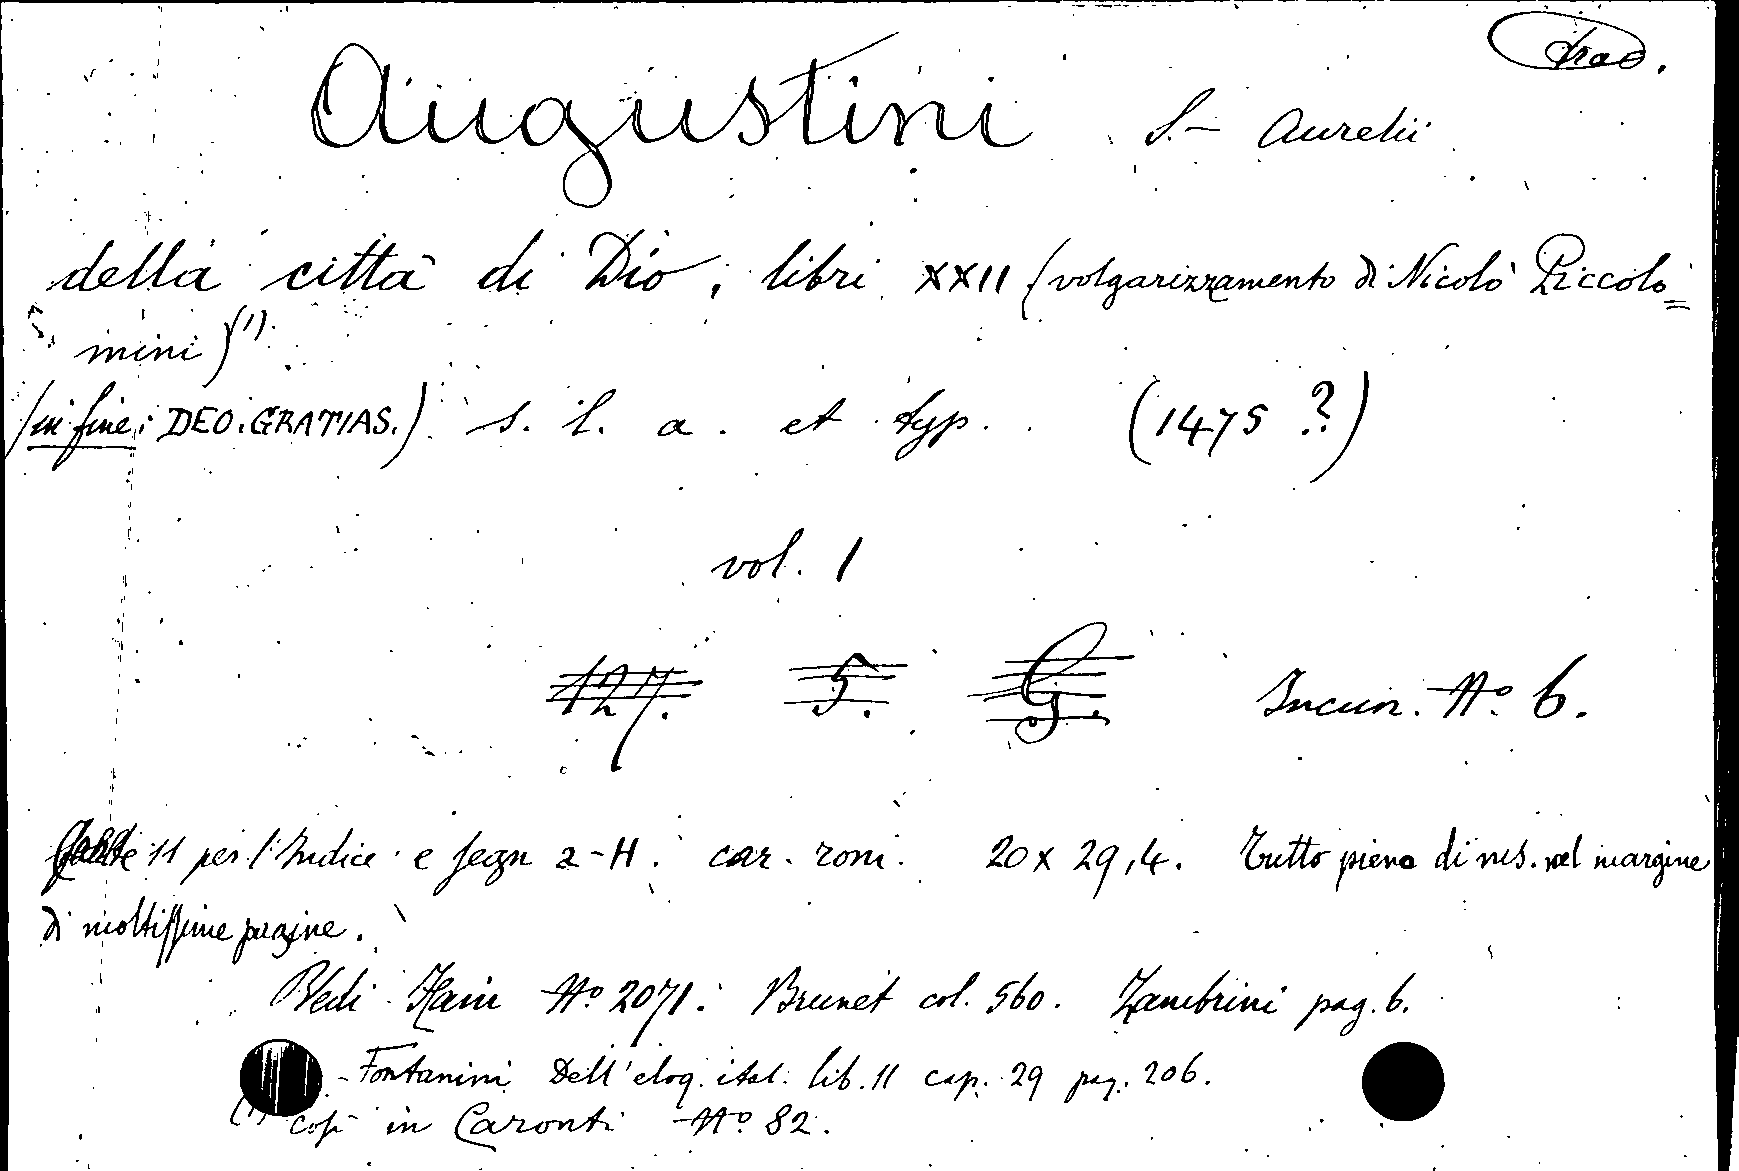 trad.
Augustini S.- Aurelii
della città di Dio, libri XXII (volgarizzamento di Nicolò Piccolo=
mini)(1).
(in fine: DEO.GRATIAS.) s. l. a. et typ. (1475 ?)
vol. 1
127. 5. G. Incun. Nº 6.
11 per l'Indice e segn a-H. car. rom. 20 x 29,4. Tutto pieno di ms. nel margine
di moltissime pagine.
Vedi Hain Nº 2071. Brunet col. 560. Zambrini pag. 6.
- Fontanini Dell'eloq. ital. lib. II cap. 29 pag. 206.
(1) così in Caronti Nº 82.